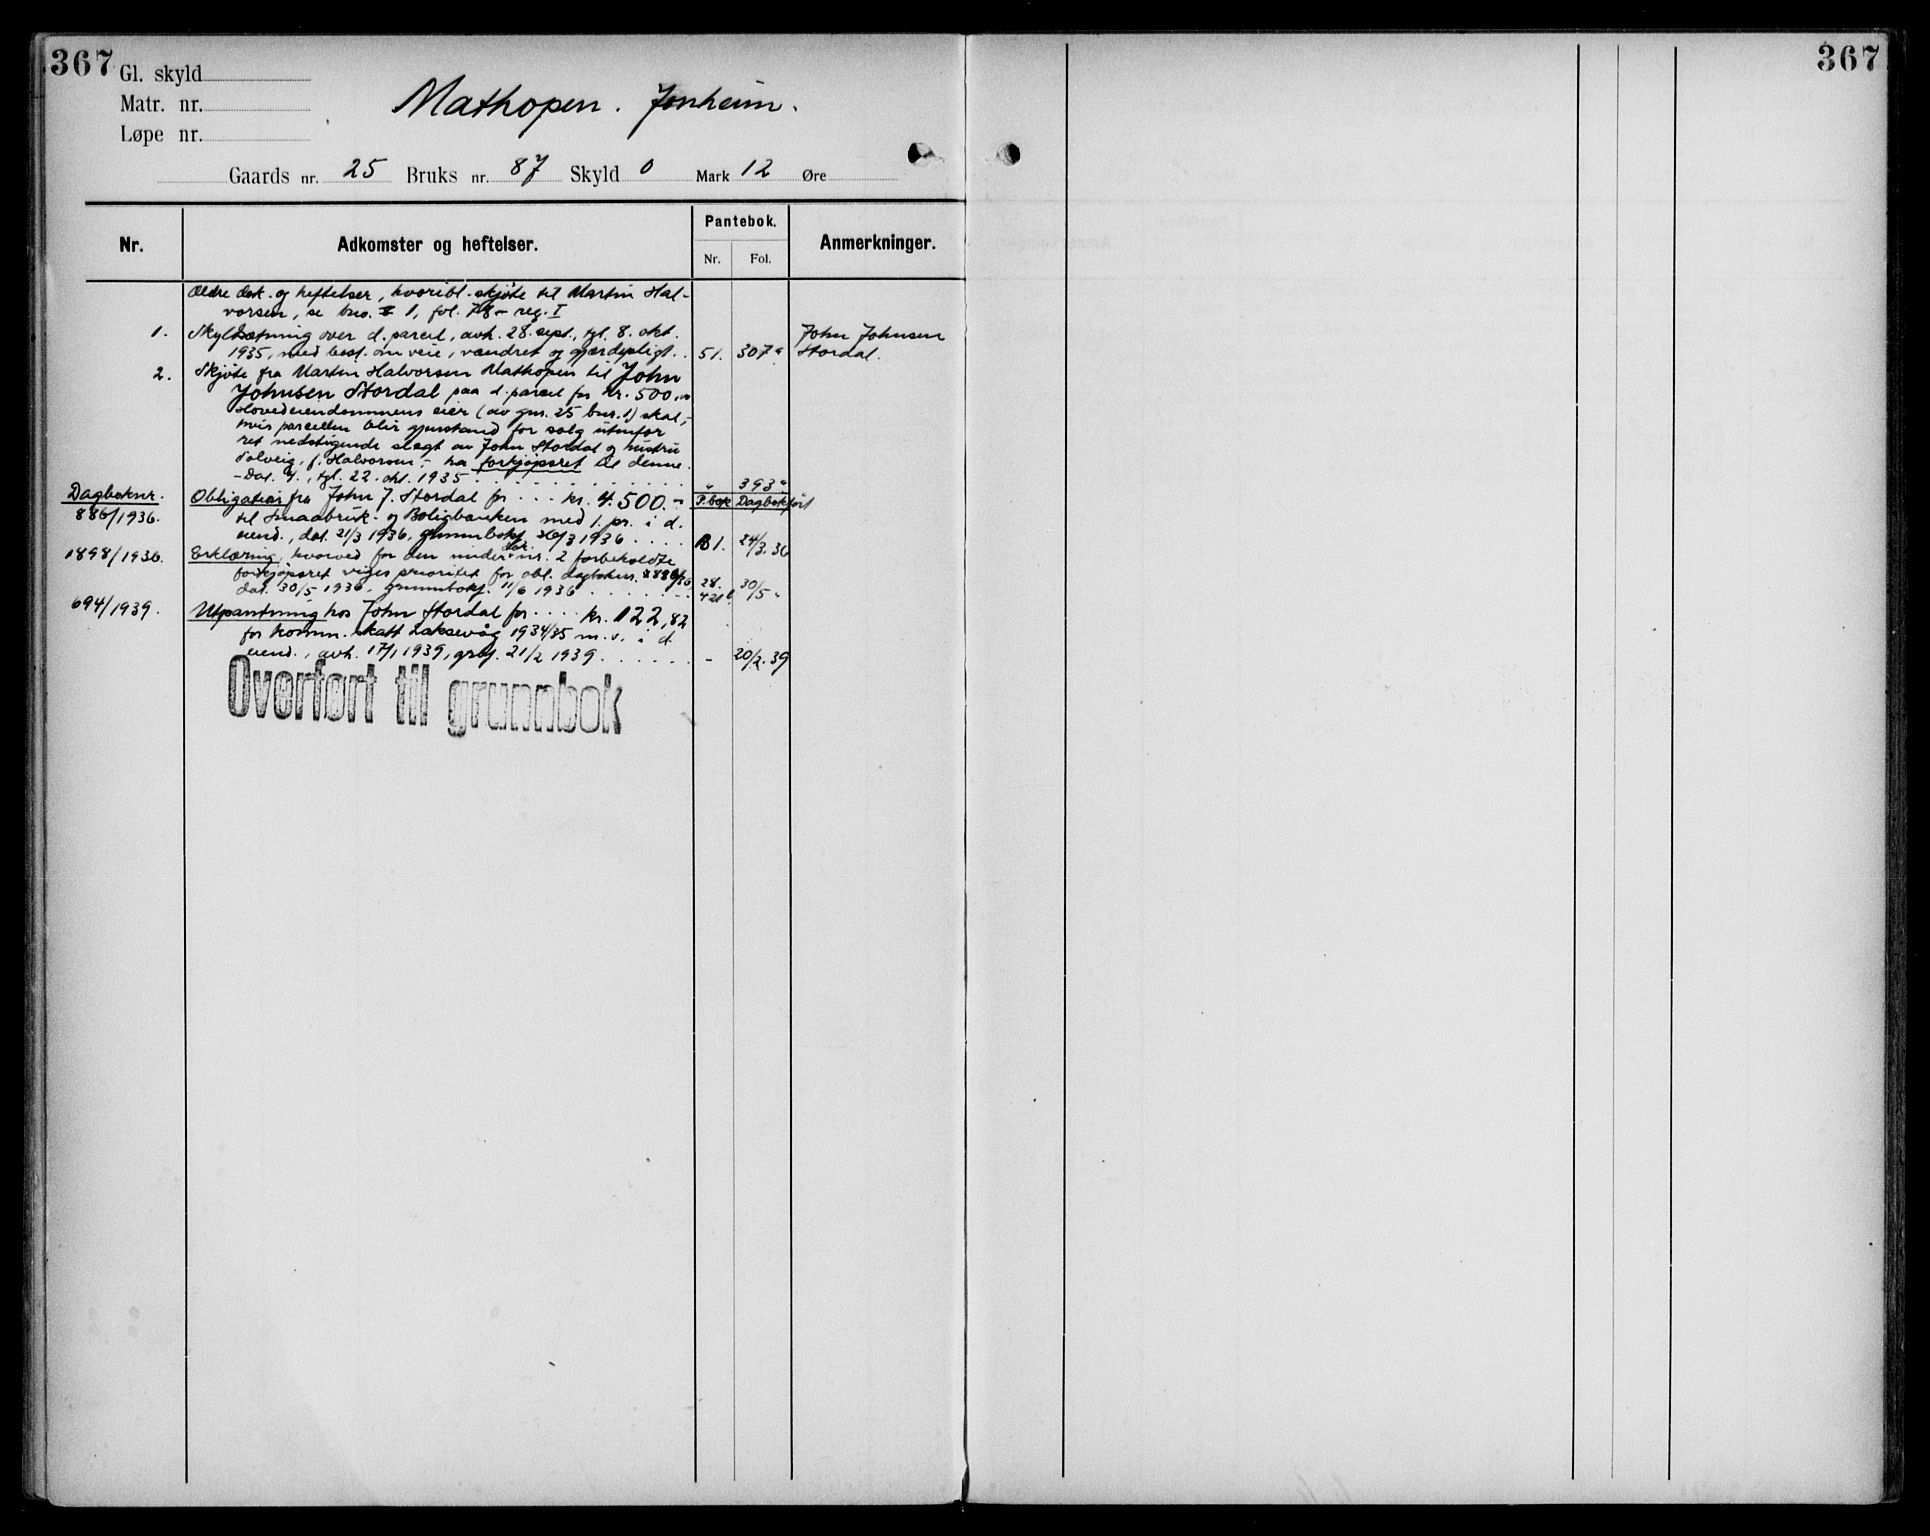 367
367
Gl. skyld
Matr. nr.
Løpe nr.
Mathopen. Jonheim.
Gaards nr. 25 Bruks nr. 87 Skyld 0 Mark 12 Øre
Nr. Adkomster og heftelser. Pantebok. Anmerkninger.
Nr. Fol.
Ældre dok. og heftelser, hvoribl. skjøte til Martin Hal-
vorsen, se bno. 1, fol. 78 - reg. I
1. Skyldsætning over d. parcel, avh. 28. sept., tgl. 8. okt.
1935, med best. om veie, vandret og gjærdepligt. 51. 307a John Johnsen
Stordal.
2. Skjøte fra Martin Halvorsen Mathopen til John
Johnsen Stordal paa d. parcel for kr. 500,00
Hovedeiendommens eier (av gnr. 25 bnr. 1) skal,-
hvis parcellen blir gjenstand for salg utenfor
ret nedstigende slegt av John Stordal og hustru
Solveig, f. Halvorsen,- ha forkjøpsret til denne.
- Dat. 4., tgl. 22. okt. 1935 " 393a
Dagboknr. Obligation fra John J. Stordal for kr. 4.500.- P.bok Dagbokført
886/1936. til Smaabruk- og Boligbanken med 1. pr. i d.
eiend., dat. 21/3 1936, grunnbokf. 26/3 1936 B1. 24/3.36
1898/1936. Erklæring, hvorved for den under dok. nr. 2 forbeholdte
forkjøpsret viges prioritet for obl. dagboknr. 886/36
dat. 30/5 1936, grunnbokf. 11/6 1936 28. 421b 30/5 "
694/1939. Utpantning hos John Stordal for kr. 122,82
for komm. skatt Laksevåg 1934/35 m.v. i d.
eiend., avh. 17/1 1939, grbf. 21/2 1939 - 20/2.39
Overført til grunnbok